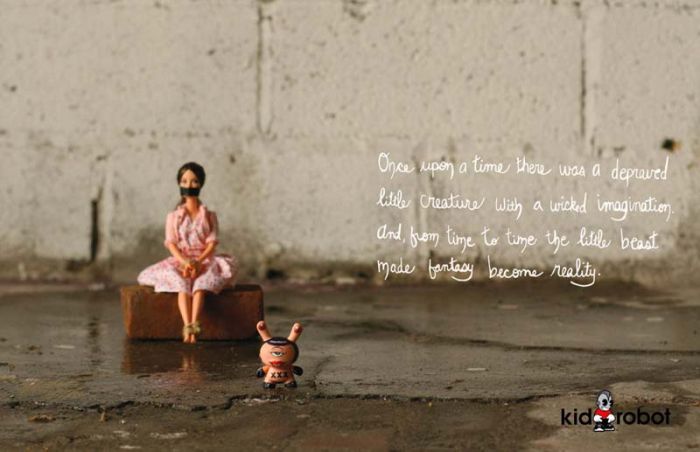 Once upon a time there was a depraved
little creature with a wicked imagination.
And, from time to time the little beast
made fantasy become reality.
XXX
kidrobot